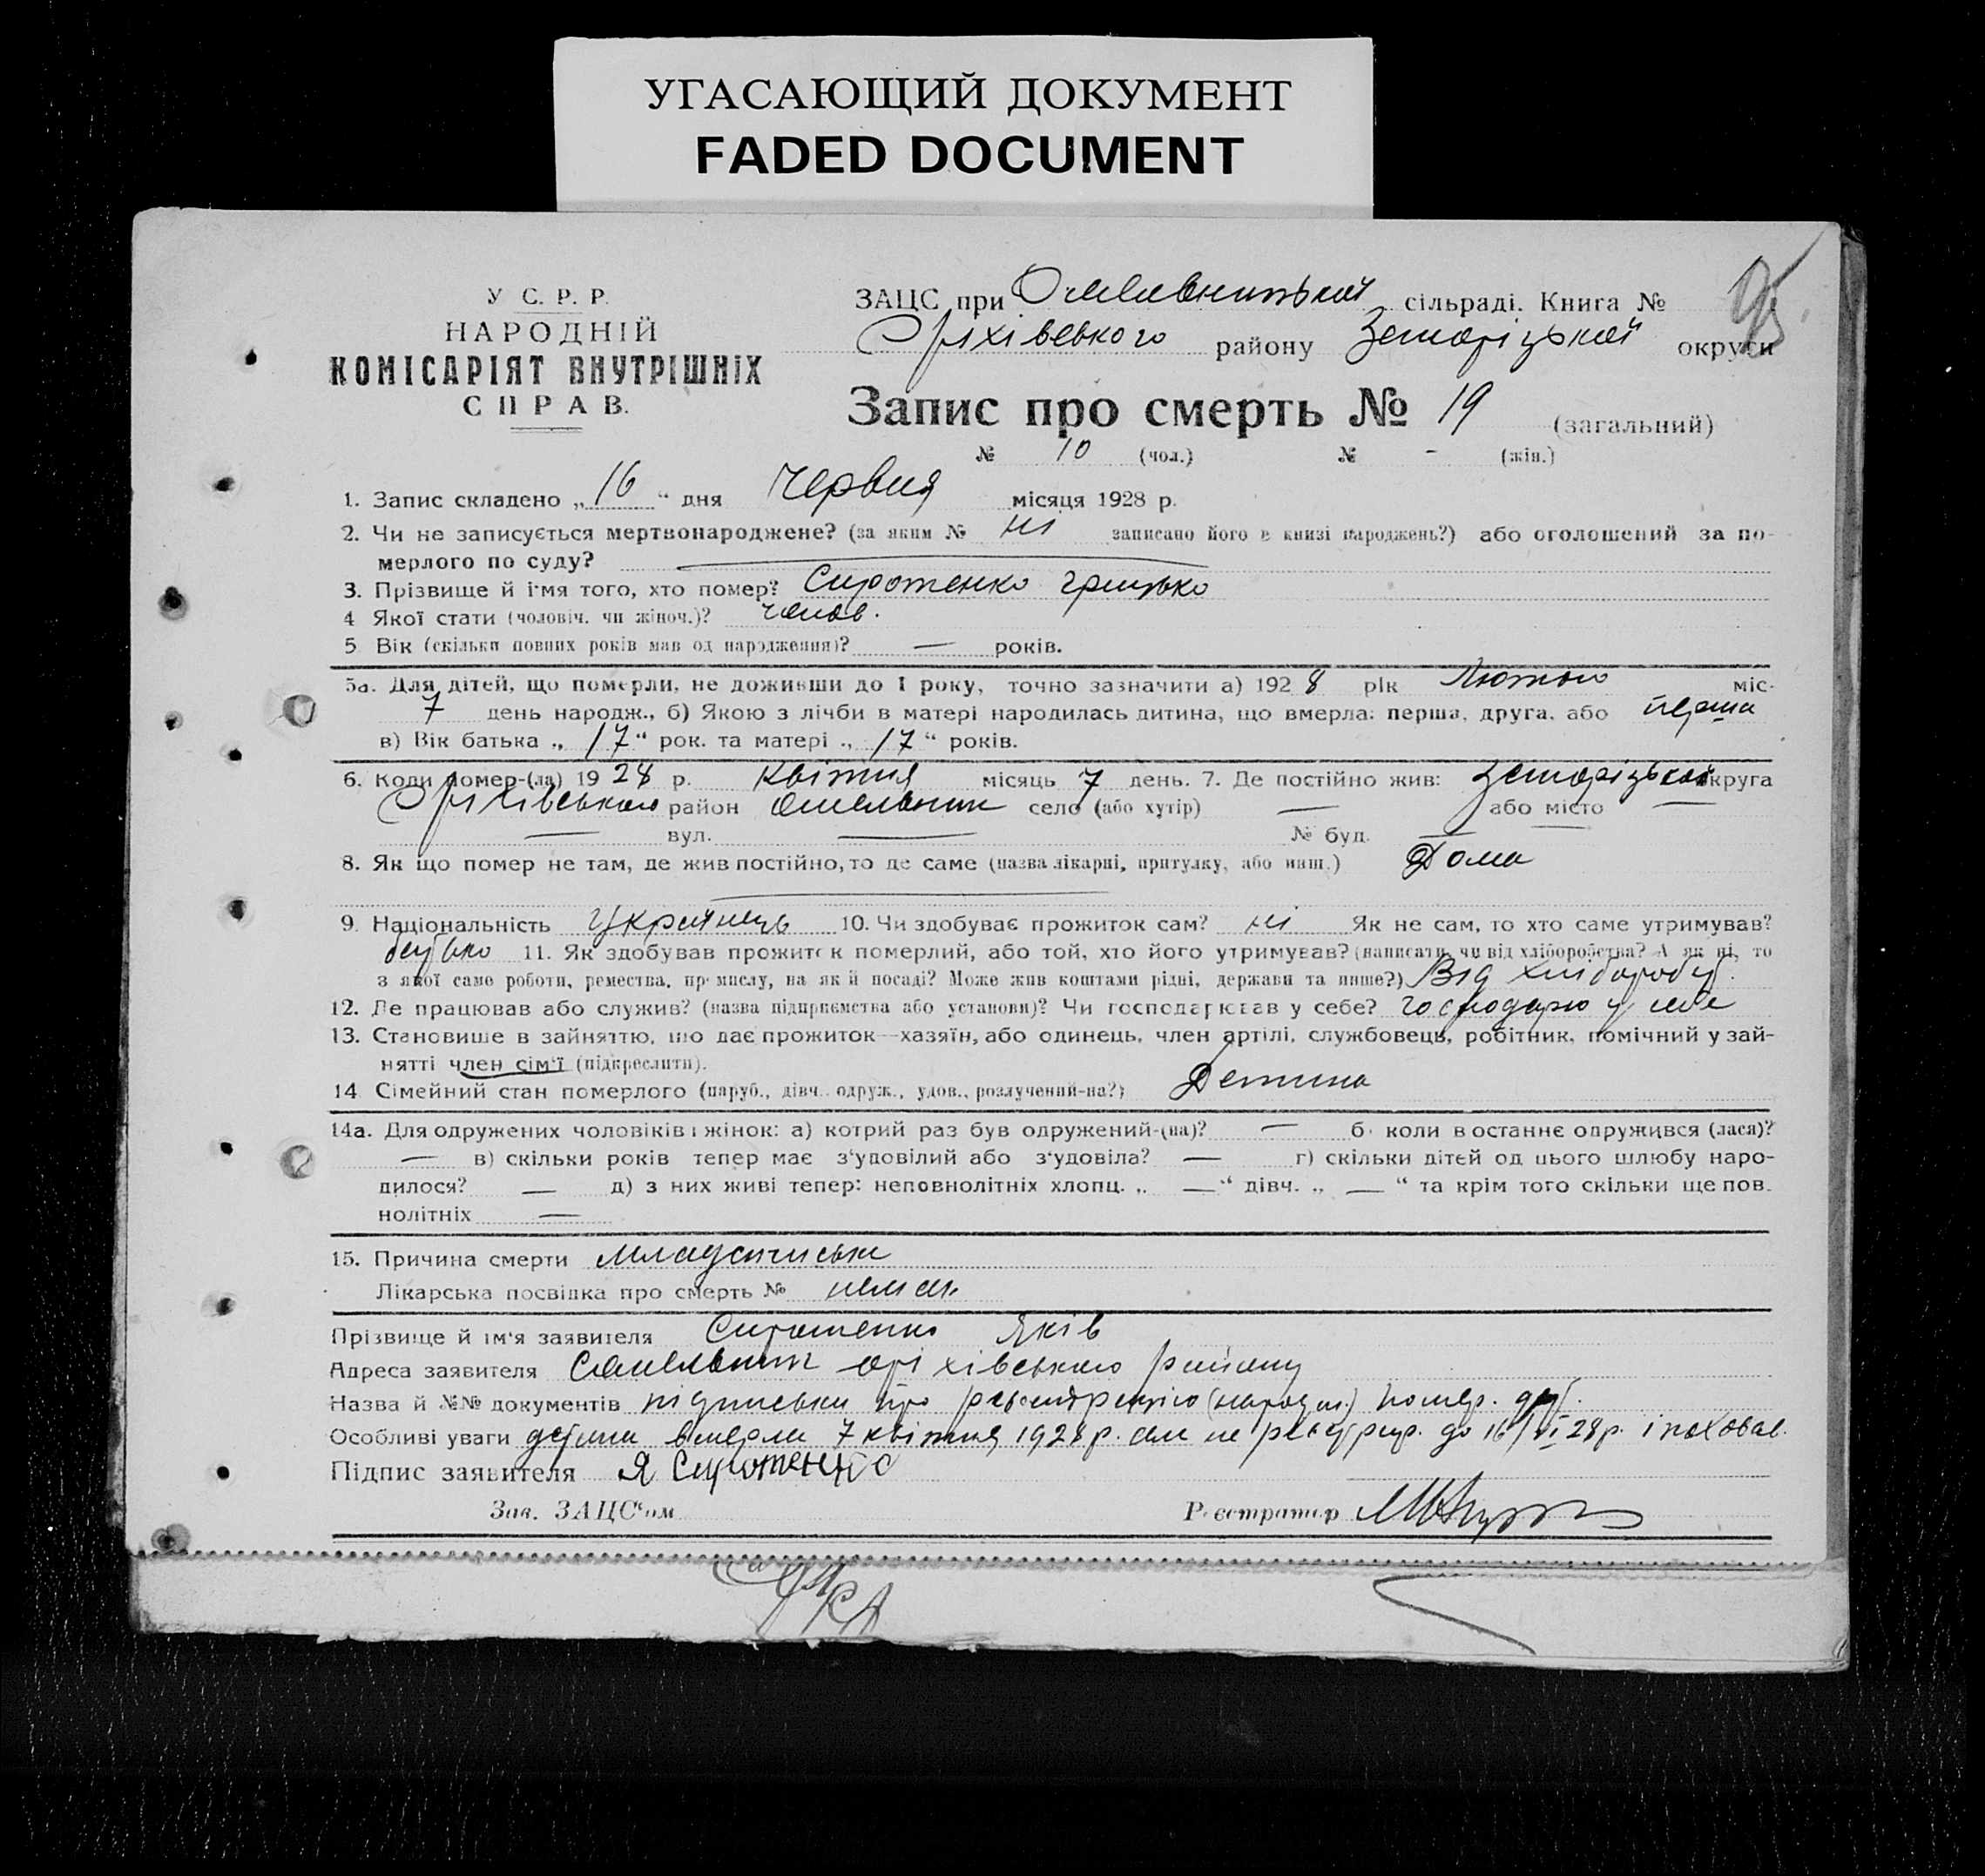 УГАСАЮЩИЙ ДОКУМЕНТ
FADED DOCUMENT
95
У С. Р. Р.
НАРОДНІЙ
КОМІСАРІЯТ ВНУТРІШНІХ
СПРАВ.
ЗАЦС при Омельницькой сільраді. Книга №
Оріхівського району Запоріцькой округи
Запис про смерть № 19 (загальний)
№ 10 (чол.) № - (жін.)
1. Запис складено „16“ дня Червня місяця 1928 р.
2. Чи не записується мертвонароджене? (за яким № ні записано його в книзі народжень?) або оголошений за по-
мерлого по суду? —
3. Прізвище й ім'я того, хто помер? Сиротенко Грицько
4 Якої стати (чоловіч. чи жіноч.)? чолов.
5 Вік (скільки повних років мав од народження)? — років.
5а. Для дітей, що померли, не доживши до 1 року, точно зазначити а) 1928 рік Лютого міс.
7 день народж., б) Якою з лічби в матері народилась дитина, що вмерла: перша, друга, або перша
в) Вік батька „17“ рок. та матері „17“ років.
6. Коли помер-(ла) 1928 р. Квітня місяць 7 день. 7. Де постійно жив: Запоріцькой округа
Оріхівського район Омельник село (або хутір) — або місто —
— вул. — № буд. —
8. Як що помер не там, де жив постійно, то де саме (назва лікарні, притулку, або инш.) Дома
9. Національність Українець 10. Чи здобуває прожиток сам? ні Як не сам, то хто саме утримував?
батько 11. Як здобував прожиток померлий, або той, хто його утримував? (написати, чи від хліборобства? А як ні, то
з якої саме роботи, ремества, промислу, на якій посаді? Може жив коштами рідні, держави та инше?) Від хлібороб.
12. Де працював або служив? (назва підприємства або установи)? Чи господарював у себе? Господарю у себе
13. Становище в зайняттю, що дає прожиток—хазяїн, або одинець, член артілі, службовець, робітник, помічний у зай-
нятті член сім'ї (підкреслити).
14 Сімейний стан померлого (паруб., дівч., одруж., удов., розлучений-на?) Детина
14а. Для одружених чоловіків і жінок: а) котрий раз був одружений-(на)? — б) коли востаннє одружився (лася)?
— в) скільки років тепер має з'удовілий або з'удовіла? — г) скільки дітей од цього шлюбу наро-
дилося? — д) з них живі тепер: неповнолітніх хлопц. „—“ дівч. „—“ та крім того скільки ще пов.
нолітніх —
15. Причина смерти Младенчиська
Лікарська посвідка про смерть № немає
Прізвище й ім'я заявителя Сиротенко Яків
Адреса заявителя С Омельник Оріхівського району
Назва й №№ документів підписька про регистрацію (народж.) помер. дит.
Особливі уваги детина вмерла 7 квітня 1928 р. але не регістрир. до 16/VI 28 р. і поховал.
Підпис заявителя Я Сиротенко
Зав. ЗАЦС'ом Реєстратор